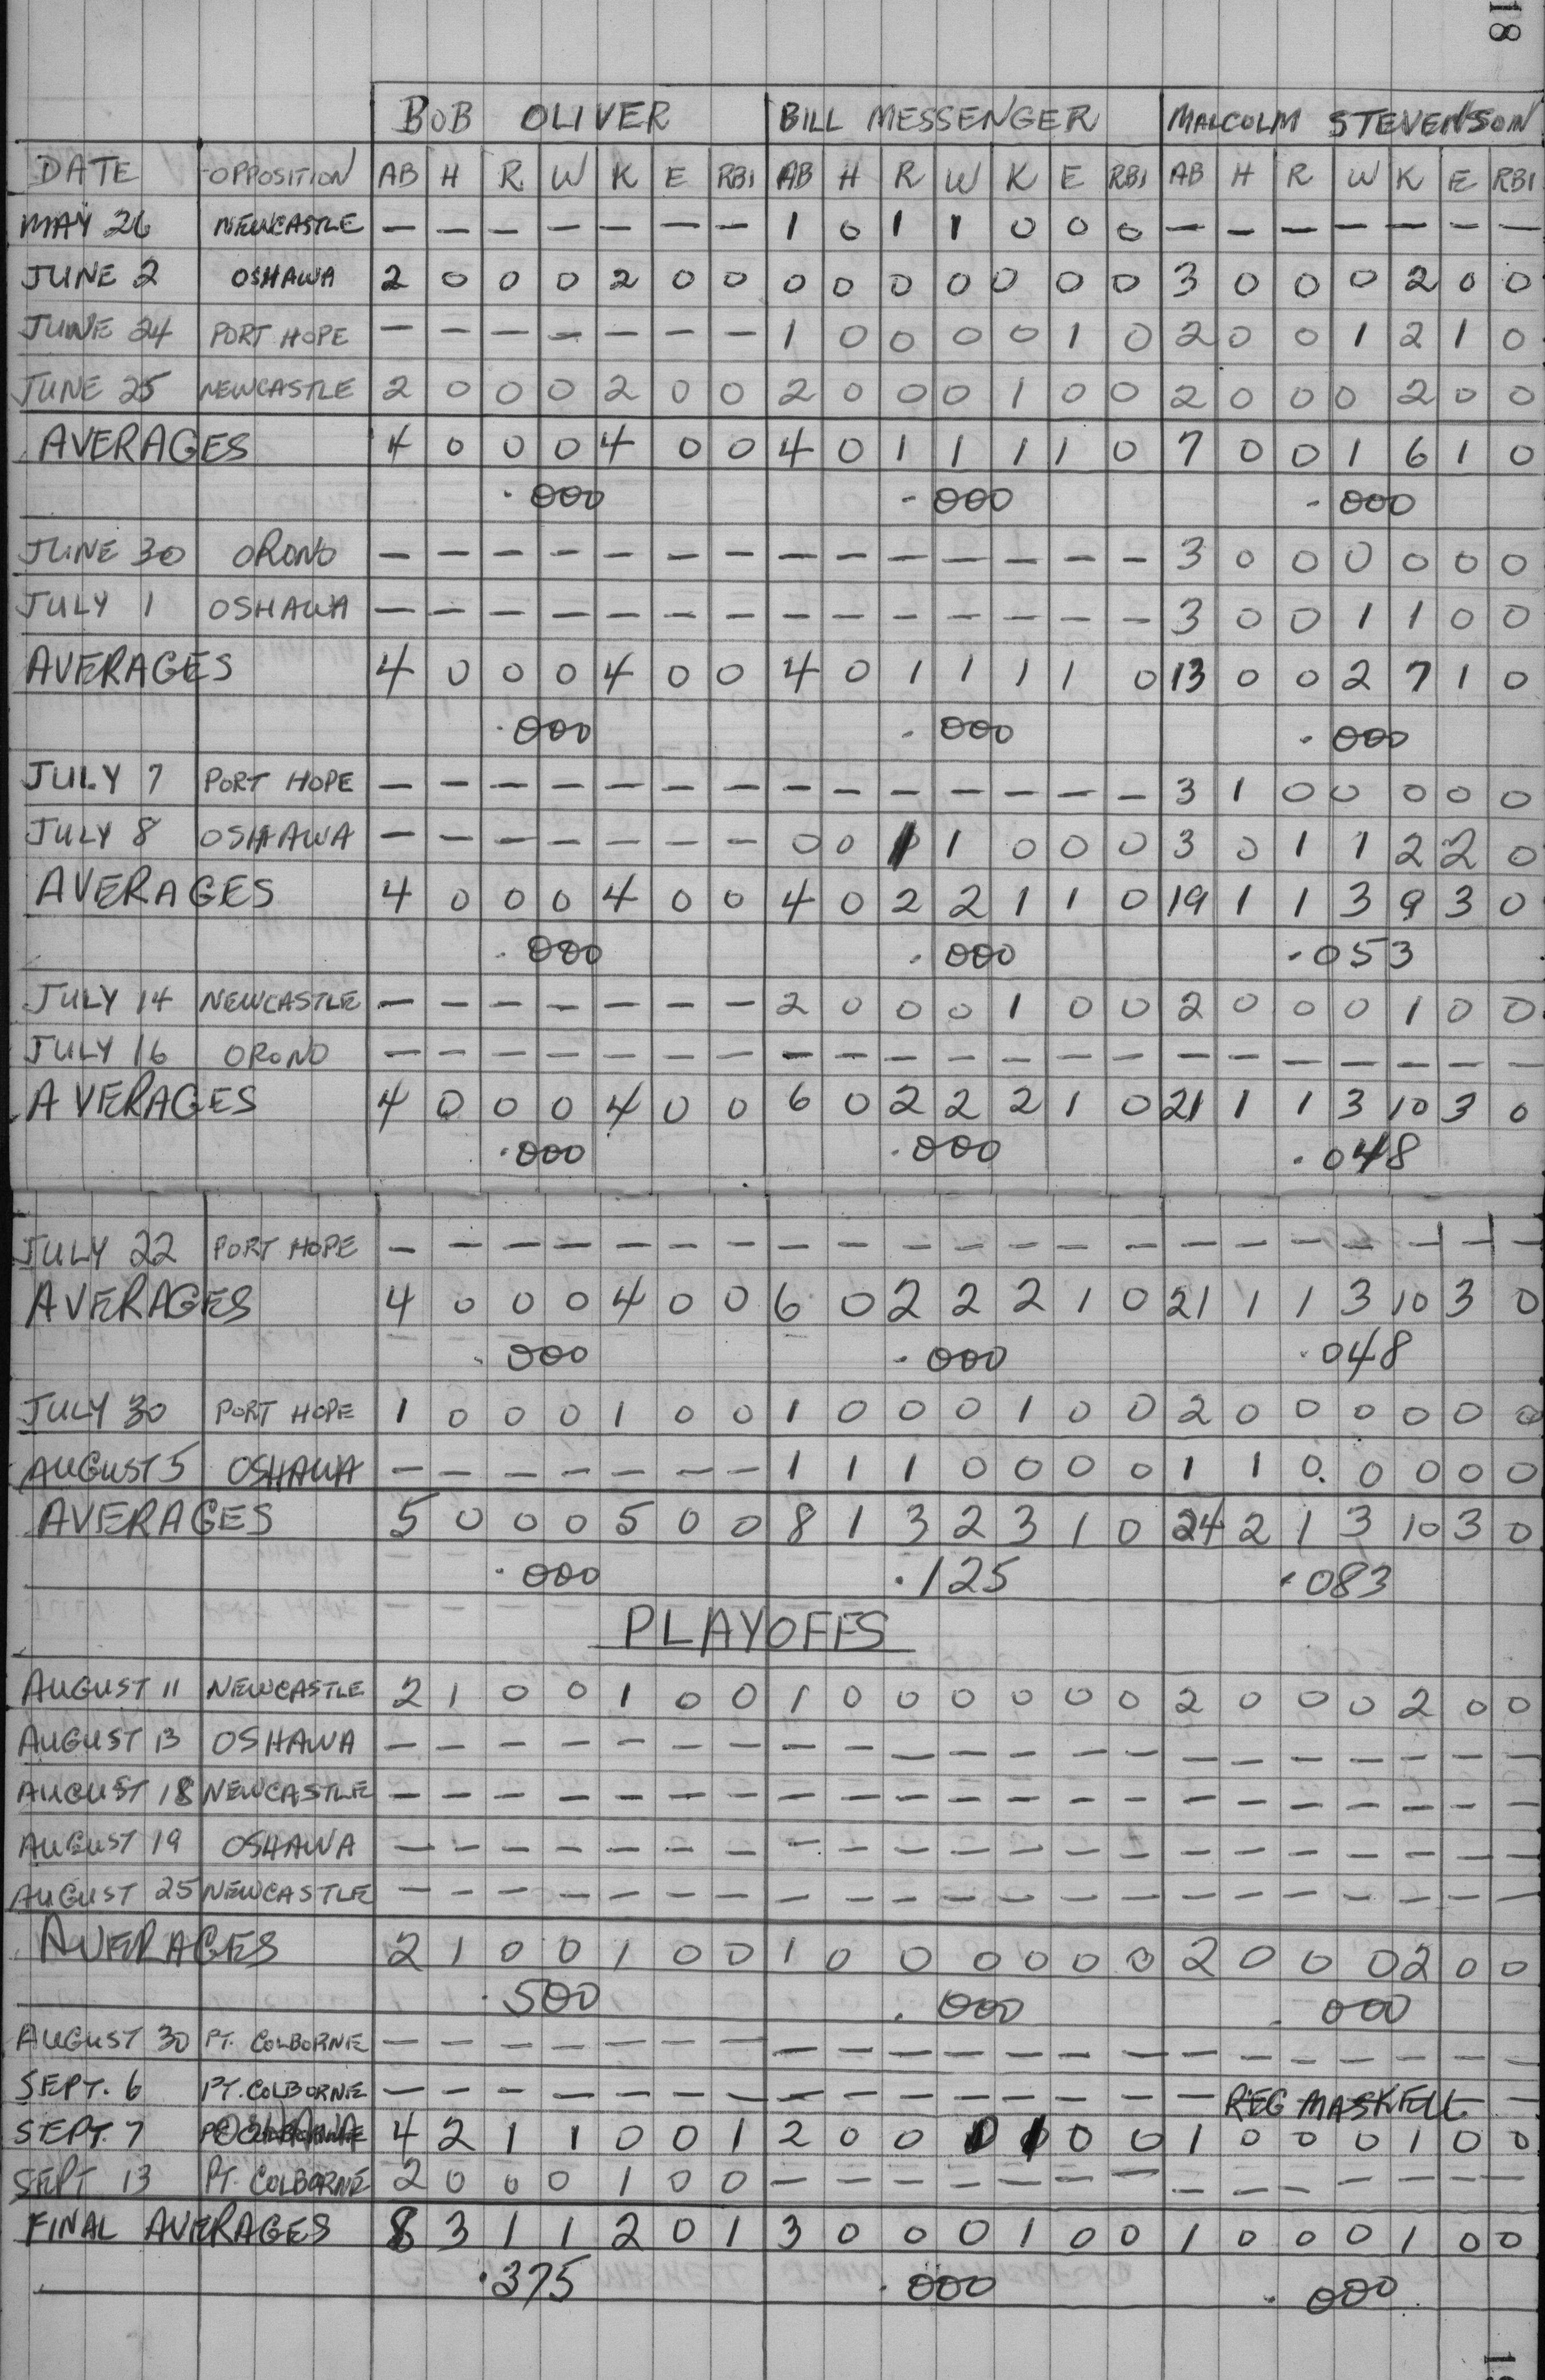 18
BOB OLIVER BILL MESSENGER MALCOLM STEVENSON
DATE OPPOSITION AB H R W K E RBI AB H R W K E RBI AB H R W K E RBI
MAY 26 NEWCASTLE — — — — — — — 1 0 1 1 0 0 0 — — — — — — —
JUNE 2 OSHAWA 2 0 0 0 2 0 0 0 0 0 0 0 0 0 3 0 0 0 2 0 0
JUNE 24 PORT HOPE — — — — — — — 1 0 0 0 0 1 0 2 0 0 1 2 1 0
JUNE 25 NEWCASTLE 2 0 0 0 2 0 0 2 0 0 0 1 0 0 2 0 0 0 2 0 0
AVERAGES 4 0 0 0 4 0 0 4 0 1 1 1 1 0 7 0 0 1 6 1 0
.000 .000 .000
JUNE 30 ORONO — — — — — — — — — — — — — — 3 0 0 0 0 0 0
JULY 1 OSHAWA — — — — — — — — — — — — — — 3 0 0 1 1 0 0
AVERAGES 4 0 0 0 4 0 0 4 0 1 1 1 1 0 13 0 0 2 7 1 0
.000 .000 .000
JULY 7 PORT HOPE — — — — — — — — — — — — — — 3 1 0 0 0 0 0
JULY 8 OSHAWA — — — — — — — 0 0 1 1 0 0 0 3 0 1 1 2 2 0
AVERAGES 4 0 0 0 4 0 0 4 0 2 2 1 1 0 19 1 1 3 9 3 0
.000 .000 .053
JULY 14 NEWCASTLE — — — — — — — 2 0 0 0 1 0 0 2 0 0 0 1 0 0
JULY 16 ORONO — — — — — — — — — — — — — — — — — — — — —
AVERAGES 4 0 0 0 4 0 0 6 0 2 2 2 1 0 21 1 1 3 10 3 0
.000 .000 .048
JULY 22 PORT HOPE — — — — — — — — — — — — — — — — — — — — —
AVERAGES 4 0 0 0 4 0 0 6 0 2 2 2 1 0 21 1 1 3 10 3 0
.000 .000 .048
JULY 30 PORT HOPE 1 0 0 0 1 0 0 1 0 0 0 1 0 0 2 0 0 0 0 0 0
AUGUST 5 OSHAWA — — — — — — — 1 1 1 0 0 0 0 1 1 0 0 0 0 0
AVERAGES 5 0 0 0 5 0 0 8 1 3 2 3 1 0 24 2 1 3 10 3 0
.000 .125 .083
PLAYOFFS
AUGUST 11 NEWCASTLE 2 1 0 0 1 0 0 1 0 0 0 0 0 0 2 0 0 0 2 0 0
AUGUST 13 OSHAWA — — — — — — — — — — — — — — — — — — — — —
AUGUST 18 NEWCASTLE — — — — — — — — — — — — — — — — — — — — —
AUGUST 19 OSHAWA — — — — — — — — — — — — — — — — — — — — —
AUGUST 25 NEWCASTLE — — — — — — — — — — — — — — — — — — — — —
AVERAGES 2 1 0 0 1 0 0 1 0 0 0 0 0 0 2 0 0 0 2 0 0
.500 .000 .000
AUGUST 30 PT. COLBORNE — — — — — — — — — — — — — — — — — — — — —
SEPT. 6 PT. COLBORNE — — — — — — — — — — — — — — — REG MASKELL —
SEPT. 7 4 2 1 1 0 0 1 2 0 0 0 1 0 0 1 0 0 0 1 0 0
SEPT 13 PT. COLBORNE 2 0 0 0 1 0 0 — — — — — — — — — — — — — —
FINAL AVERAGES 8 3 1 1 2 0 1 3 0 0 0 1 0 0 1 0 0 0 1 0 0
.375 .000 .000